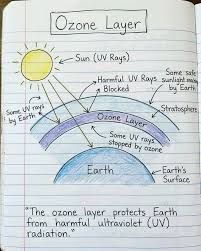 Ozone Layer
Sun (UV Rays)
Harmful UV Rays
Blocked
Some safe
sunlight
Stratosphere
Some UV rays
by Earth
Ozone Layer
Some UV rays
stopped by ozone
Earth
Earth's
Surface
"The ozone layer protects Earth
from harmful ultraviolet (UV)
radiation."